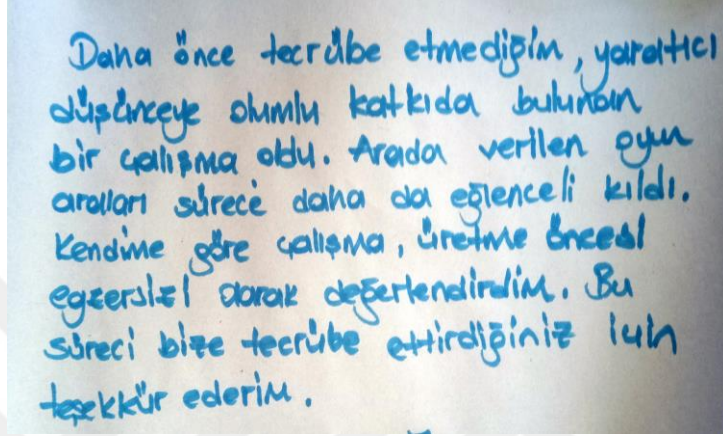 Daha önce tecrübe etmediğim, yarattıcı
düşünceye olumlu katkıda bulunan
bir çalışma oldu. Arada verilen oyun
araları sürece daha da eğlenceli kıldı.
Kendime göre çalışma, üretme öncesi
egzersizi olarak değerlendirdim. Bu
süreci bize tecrübe ettirdiğiniz için
teşekkür ederim.